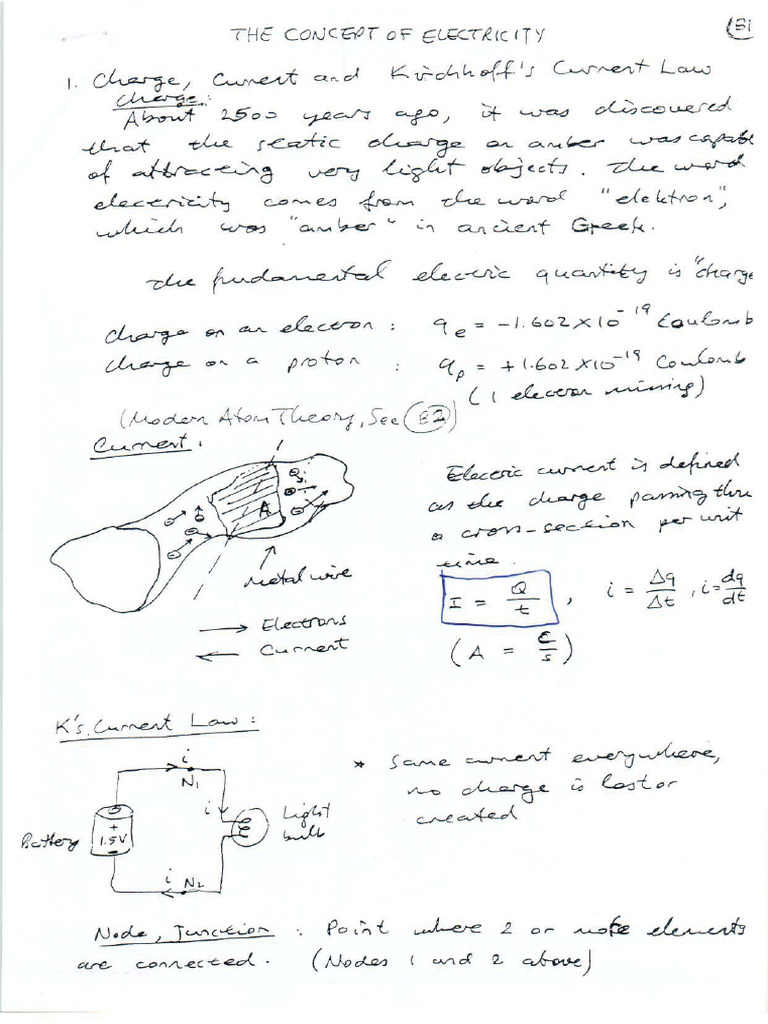 THE CONCEPT OF ELECTRICITY
B1
1. Charge, Current and Kirchhoff's Current Law
Charge:
About 2500 years ago, it was discovered
that the static charge on amber was capable
of attracting very light objects. The word
electricity comes from the word "elektron",
which was "amber" in ancient Greek.
The fundamental electric quantity is "charge
charge on an electron : qe = -1.602×10⁻¹⁹ Coulomb
charge on a proton : qp = +1.602×10⁻¹⁹ Coulomb
(1 electron missing)
(Modern Atom Theory, See B2)
Current.
Electric current is defined
as the charge passing thru
a cross-section per unit
time.
A
metal wire
I = Q/t , i = Δq/Δt , i = dq/dt
(A = C/s)
→ Electrons
← Current
K's Current Law :
i
N1
i
Light
bulb
Battery
+
1.5V
i
N2
* Same current everywhere,
no charge is lost or
created
Node, Junction : Point where 2 or more elements
are connected. (Nodes 1 and 2 above)